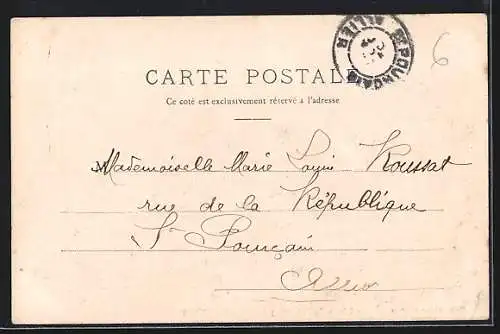 ST POURÇAIN
ALLIER
6
CARTE POSTALE
Ce coté est exclusivement réservé à l'adresse
Mademoiselle Marie Louise Roussat
rue de la République
St Pourçain
Allier